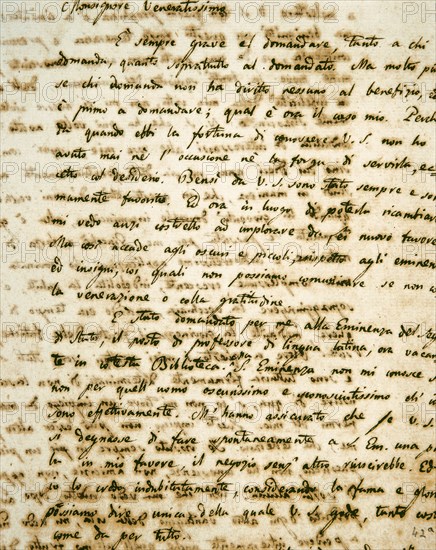 Monsignore Veneratissimo
È sempre grave il domandare, tanto a chi
domanda, quanto soprattutto al domandato. Ma molto più
se chi domanda non ha diritto nessuno al benefizio, ed
è primo a domandare; qual è ora il caso mio. Perchè
da quando ebbi la fortuna di conoscere V. S. non ho
avuto mai nè l'occasione nè la forza di servirla,
ed il desiderio. Bensì da V. S. sono stato sempre e
mamente favorito. Ed ora in luogo di poterla ricambiare
mi vedo anzi costretto ad implorare di Lei nuovo favore
Ma così accade agli oscuri e piccoli, rispetto agli eminen
ed insigni, coi quali non possiamo comunicare se non
la venerazione o colla gratitudine
È stato domandato per me alla Eminenza del Seg
di stato, il posto di professore di lingua latina, ora vacan
te in cotesta Biblioteca. S. Eminenza non mi conosce
non per quell'uomo oscurissimo e sconosciutissimo ch'
sono effettivamente. M'hanno assicurato che se V. S.
si degnasse di fare spontaneamente a S. Em. una pa
la in mio favore il negozio senz'altro riuscirebbe. Ed
io lo credo indubitatamente, considerando la fama e glori
possiamo dire unica della quale V. S. gode, tanto cost
come da per tutto.
42a